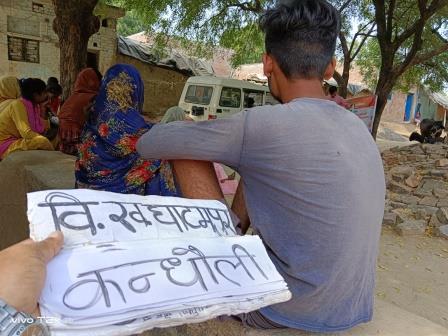 वि. ख घाटमपुर
कन्धौली
vivo T2x